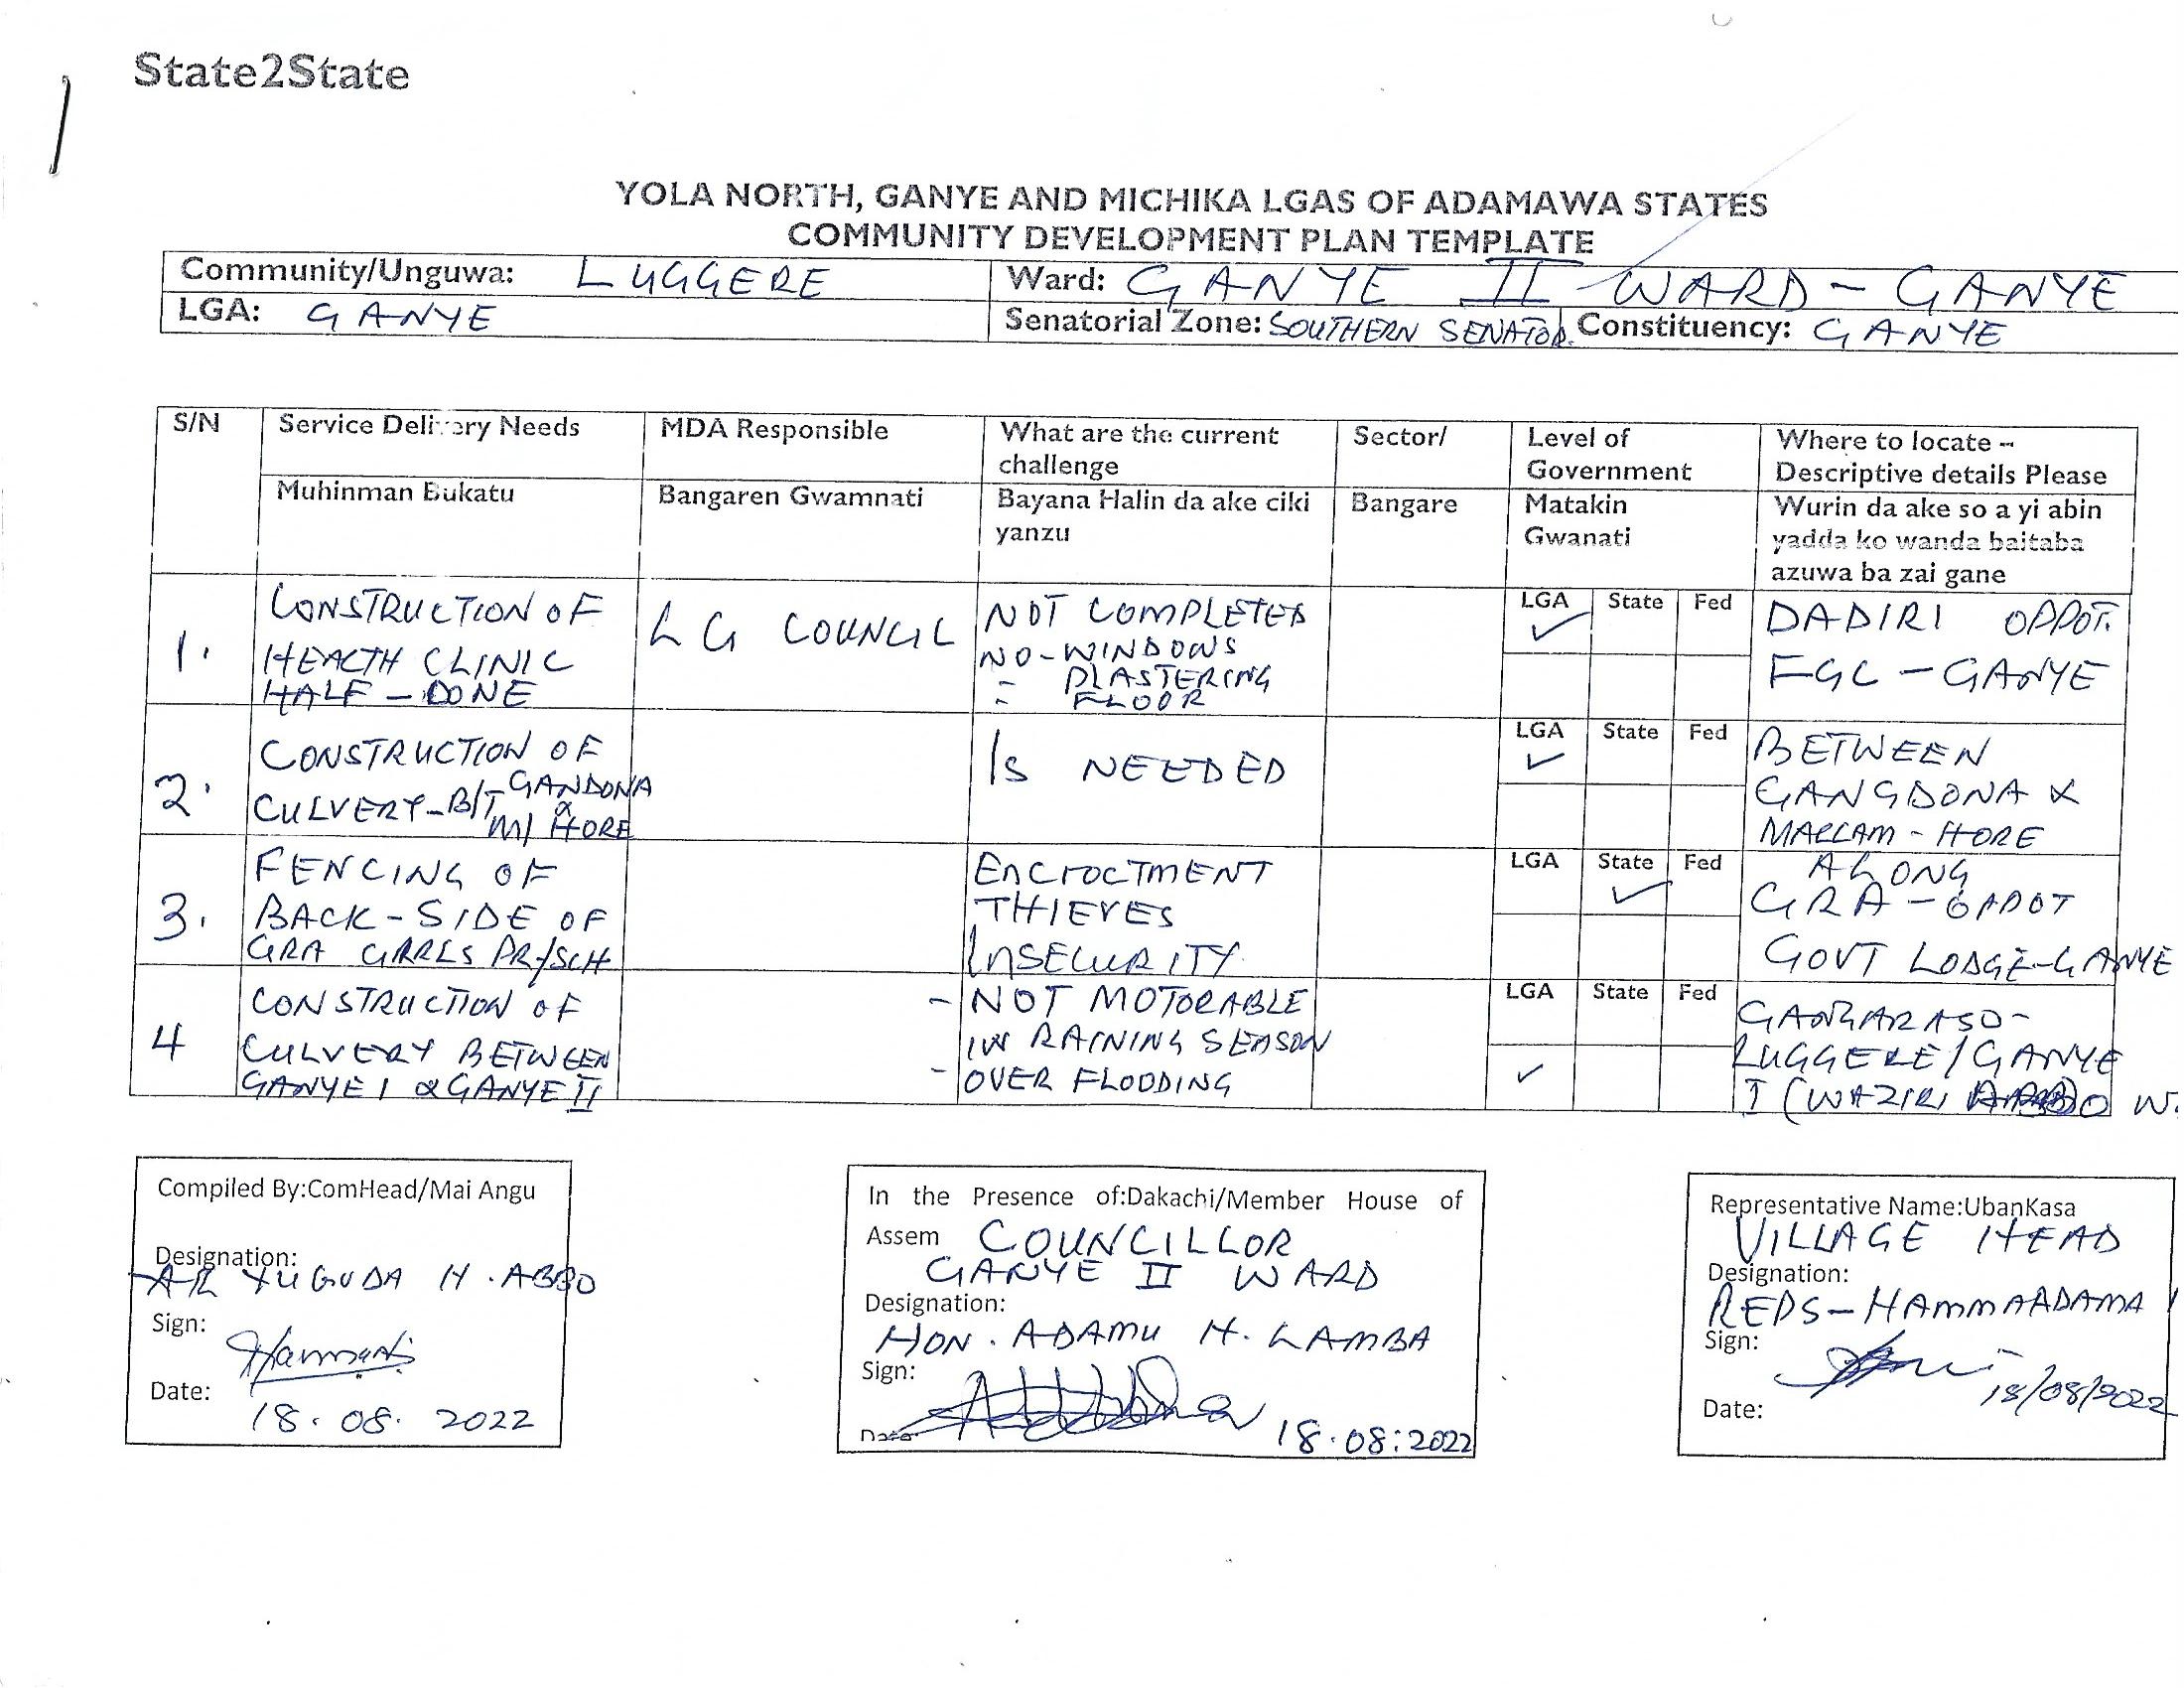 State2State
YOLA NORTH, GANYE AND MICHIKA LGAS OF ADAMAWA STATES
COMMUNITY DEVELOPMENT PLAN TEMPLATE
Community/Unguwa: LUGGERE
Ward: GANYE II WARD - GANYE
LGA: GANYE
Senatorial Zone: SOUTHERN SENATOR. Constituency: GANYE
S/N
Service Delivery Needs
MDA Responsible
What are the current
challenge
Sector/
Level of
Government
Where to locate –
Descriptive details Please
Muhinman Bukatu
Bangaren Gwamnati
Bayana Halin da ake ciki
yanzu
Bangare
Matakin
Gwanati
Wurin da ake so a yi abin
yadda ko wanda baitaba
azuwa ba zai gane
1.
CONSTRUCTION OF
HEALTH CLINIC
HALF - DONE
LG COUNCIL
NOT COMPLETED
NO - WINDOWS
= PLASTERING
= FLOOR
LGA State Fed
✓
DADIRI OPPOT.
FGC - GANYE
2.
CONSTRUCTION OF
CULVERY - B/T GANDONA
& M/ HORE
IS NEEDED
LGA State Fed
✓
BETWEEN
GANGDONA &
MALLAM - HORE
3.
FENCING OF
BACK - SIDE OF
GRA GRRLS PR/SCH
ENCROCTMENT
THIEVES
INSECURITY
LGA State Fed
✓
ALONG
GRA - OPPOT
GOVT LODGE - GANYE
4
CONSTRUCTION OF
CULVERY BETWEEN
GANYE I & GANYE II
- NOT MOTORABLE
IN RAINING SEASON
- OVER FLOODING
LGA State Fed
✓
LUGGERE / GANYE
I (WAZIRI
Compiled By:ComHead/Mai Angu
Designation:
YUGUDA H. ABBO
Sign:
Date:
18. 08. 2022
In the Presence of:Dakachi/Member House of
Assem COUNCILLOR
GANYE II WARD
Designation:
HON. ADAMU H. LAMBA
Sign:
Date: 18.08:2022
Representative Name:UbanKasa
VILLAGE HEAD
Designation:
REPS - HAMMAADAMA
Sign:
18/08/2022
Date: